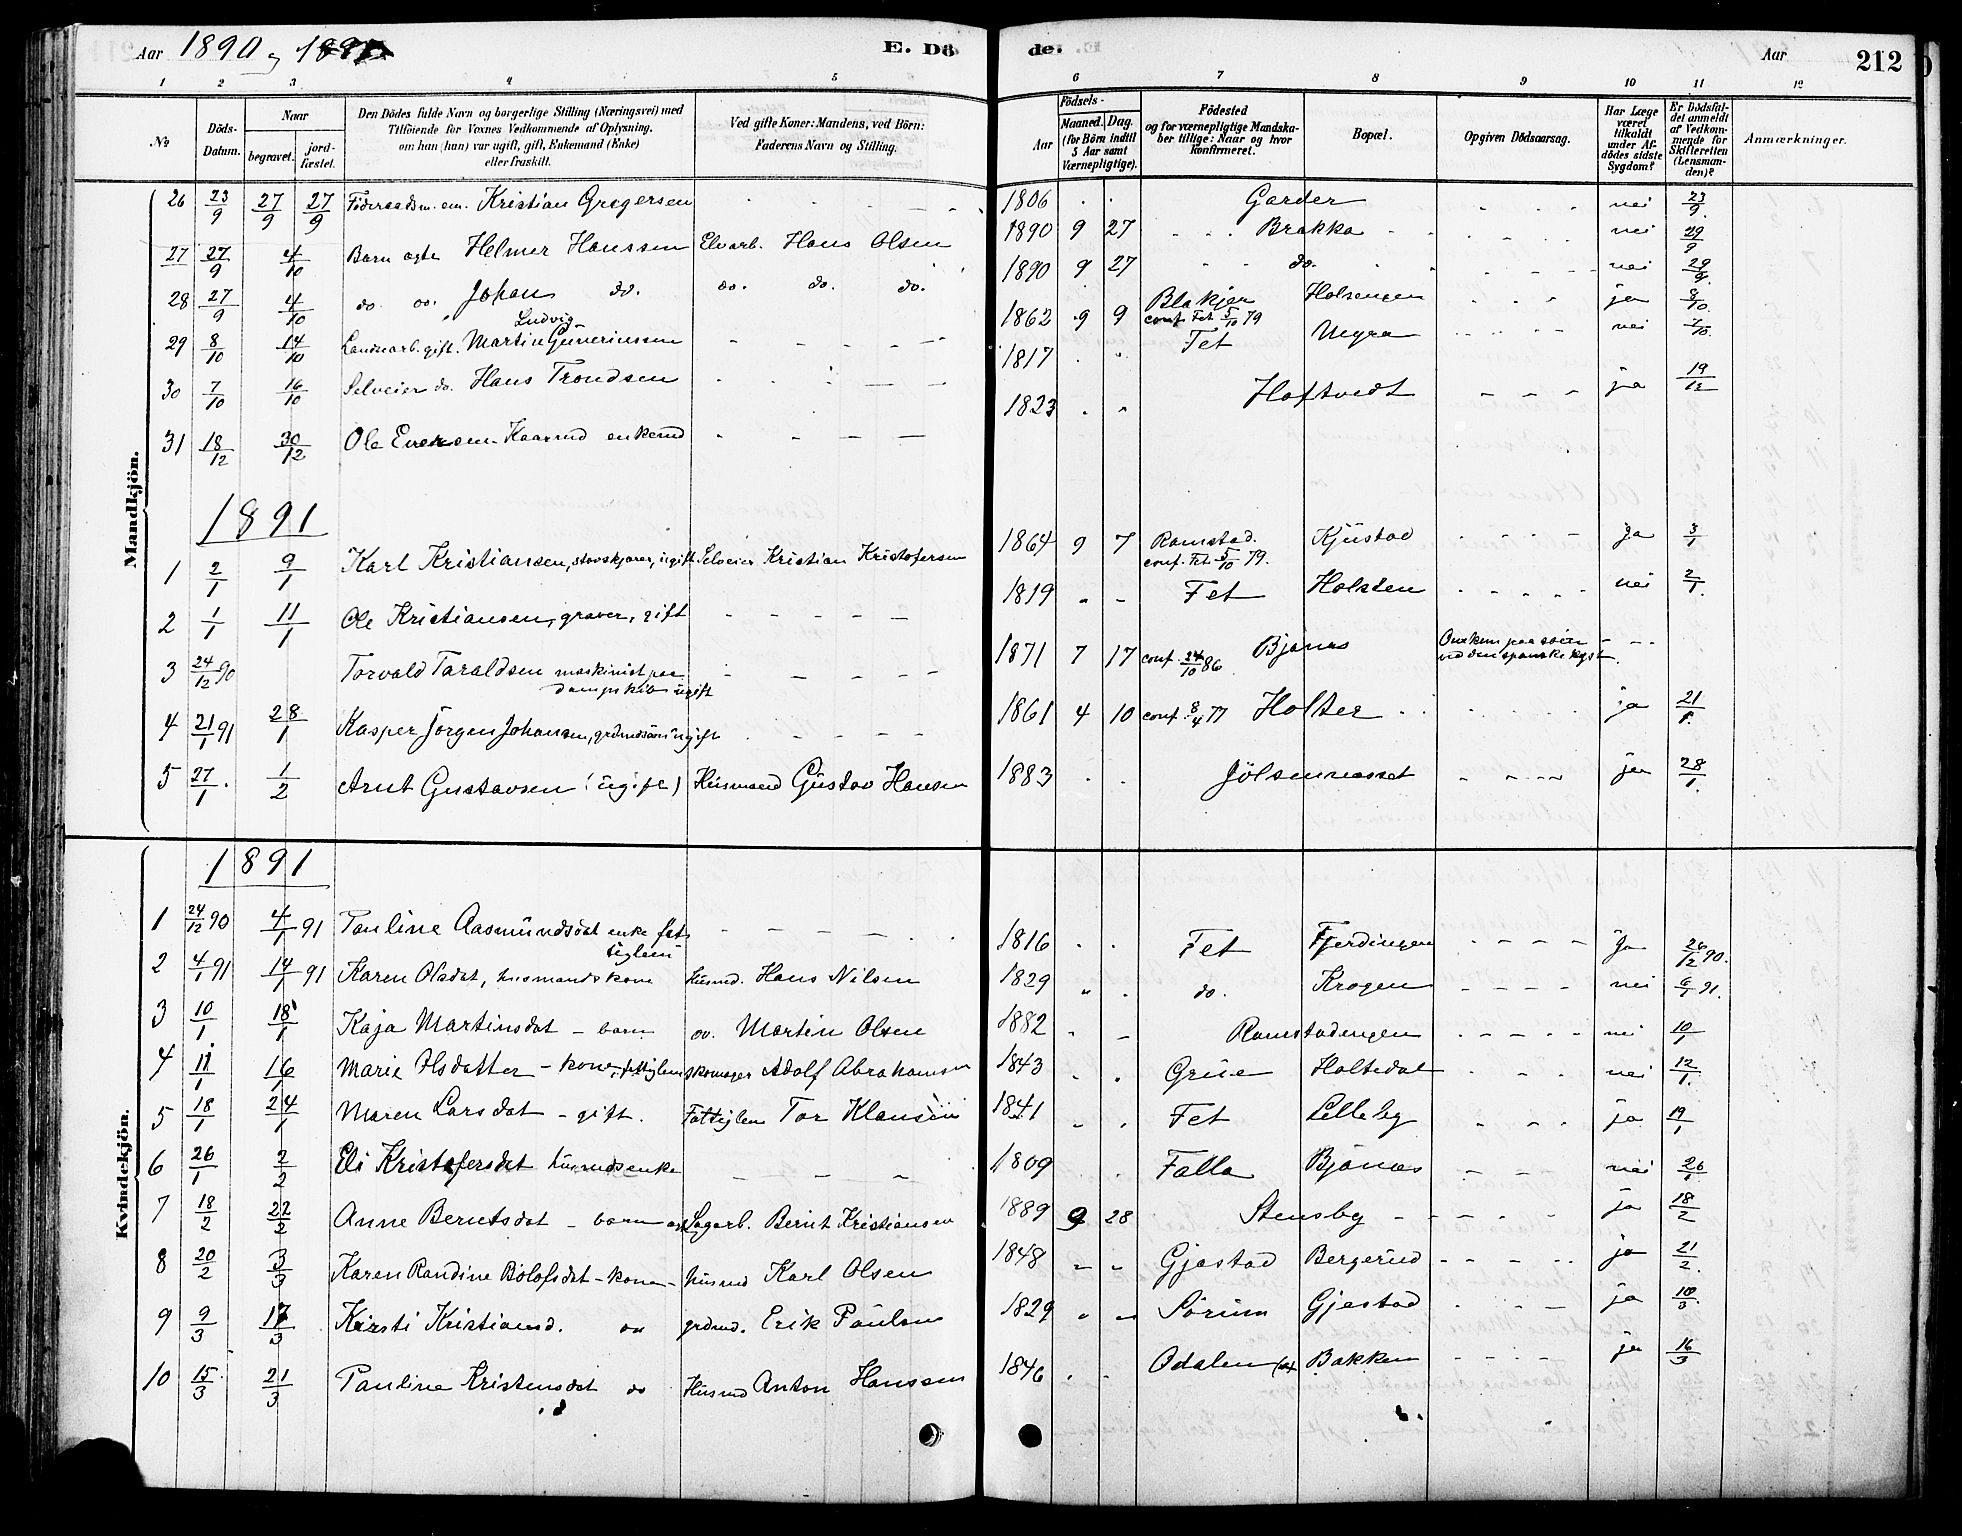 Aar 1890 og 1891
E. Dö
de.
Aar
212
1 2 3 4 5 6 7 8 9 10 11 12
No
Döds-Datum.
Naar
begravet.
jord-fæstet.
Den Dödes fulde Navn og borgerlige Stilling (Næringsvei) med
Tilföiende for Voxnes Vedkommende af Oplysning,
om han (hun) var ugift, gift, Enkemand (Enke)
eller fraskilt.
Ved gifte Koner: Mandens, ved Börn:
Faderens Navn og Stilling.
Födsels-
Aar
Maaned. Dag.
(for Börn indtil
5 Aar samt
Værnepligtige).
Födested
og for værnepligtige Mandska-
ber tillige: Naar og hvor
konfirmeret.
Bopæl.
Opgiven Dödsaarsag.
Har Læge
været
tilkaldt
under Af-
dödes sidste
Sygdom?
Er Dödsfal-
det anmeldt
af Vedkom-
mende for
Skifteretten
(Lensman-
den)?
Anmærkninger.
Mandkjön.
26 23/9 27/9 27/9 Föderaadsm. em. Kristian Gregersen - - - - 1806 . . Garder - - - nei 23/9
27 27/9 4/10 Barn ægte Helmer Hanssen Elvarb. Hans Olsen 1890 9 27 - - Brakka - - - - nei 29/9
28 27/9 4/10 do do. Johan do. do. do. do. 1890 9 27 - - do. - - - - nei 29/9
29 8/10 14/10 Landarb. gift. Martin Ludvig Gunerinssen - - - - 1862 9 9 Blakjer conf. Fet 5/10 79 Holsengen - - - ja 8/10
30 7/10 16/10 Selveier do. Hans Trondsen - - - - 1817 . " Fet Negra - - - nei 7/10
31 18/12 30/12 Ole Evensen Kaarud enkemd - - - - 1823 . " Haftvedt - - - ja 19/12
1891
1 2/1 9/1 Karl Kristiansen, stavskjærer, ugift Selveier Kristian Kristofersen 1864 9 7 Ramstad. conf. Fet 5/10 79. Kjustad - - - - ja 3/1
2 1/1 11/1 Ole Kristiansen, graver, gift - - - - 1819 " - Fet Holsten - - - - nei 2/1
3 24/12 90 Torvald Taraldsen maskinist paa dampskib ugift - - - - 1871 7 17 conf. 24/10 86 Bjönæs Omkom paa söen ved den spanske kyst. - - -
4 21/1 91 28/1 Kasper Jörgen Johansen, grdmdssön ugift - - - - 1861 4 10 conf. 8/4 77 Holter - - - - ja 21/1
5 27/1 1/2 Arnt Gustavsen (ugift) Husmand Gustav Hansen 1883 . . Jölsennesset - - - - ja 28/1
Kvindekjön.
1891
1 24/12 90 4/1 91 Pauline Aasmundsdat enke fattiglem - - - - 1816 . . Fet Fjerdingen - - - - ja 26/12 90.
2 4/1 91 14/1 91 Karen Olsdat, husmandskone husmd. Hans Nilsen 1829 " . do. Krogen - - - - nei 6/1 91.
3 10/1 18/1 Kaja Martinsdat - barn do. Martin Olsen 1882 - - Ramstadengen - - - - nei 10/1
4 11/1 16/1 Marie Olsdatter - kone, fattiglem skomager Adolf Abrahamsen 1843 . . Grue Holtedal - - - nei 12/1
5 18/1 24/1 Maren Larsdat - gift. Fattiglem Tor Klausen 1841 " . Fet Lilleby - - - ja 19/1
6 26/1 2/2 Eli Kristofersdat husmdsenke - - - 1809 . Falla Bjönæs - - - nei 26/1
7 18/2 22/2 Anne Berntsdat - barn ægt Sagarb. Bernt Kristiansen 1889 9 28 Stensby - - - - - ja 18/2
8 20/2 3/3 Karen Randine Bolofsdat - kone - husmd Karl Olsen 1848 " " Gjestad Bergerud - - - - ja 21/2
9 9/3 17/3 Kirsti Kristiansd. do grdmd. Erik Paulsen 1829 " " Sörum Gjestad - - - ja 10/3
10 15/3 21/3 Pauline Kristensdat do Husmd Anton Hanssen 1846 . . Odalen Bakken - - - - ja 16/3